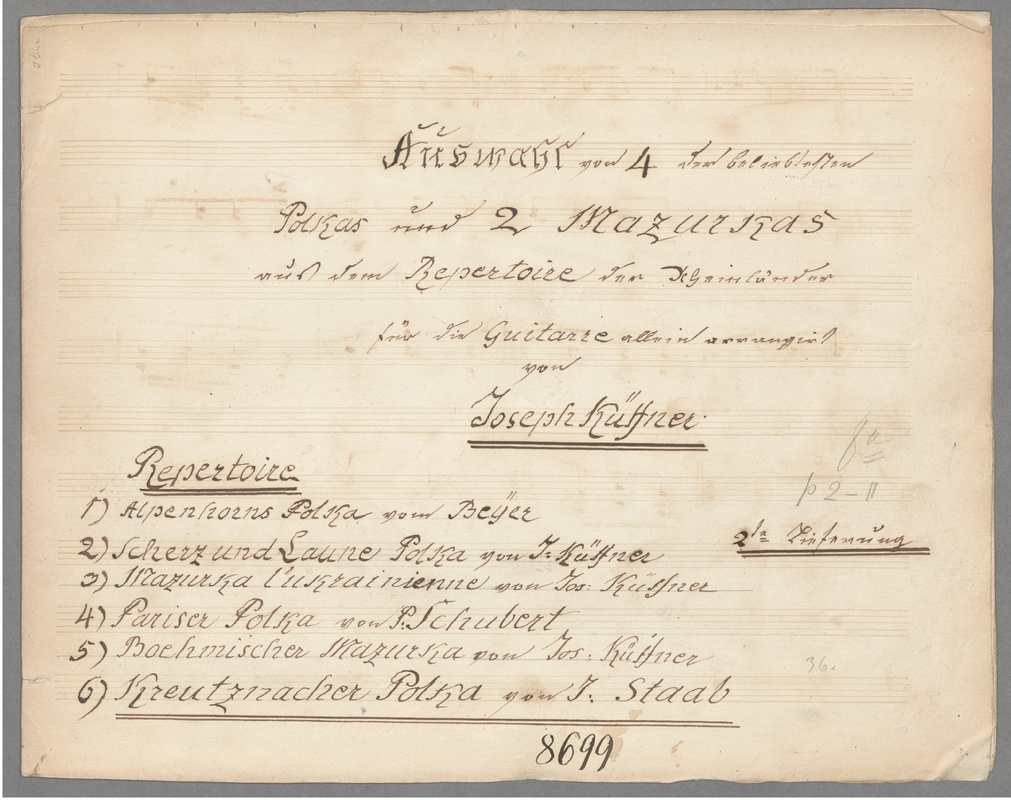 Auswahl von 4 der beliebtesten
Polkas und 2 Mazurkas
aus dem Repertoire der Rheinländer
für die Guitarre allein arrangirt
von
Joseph Küffner.
Repertoire
1) Alpenhorns Polka vom Beÿer
2te Lieferung
2) Scherz und Laune Polka von J: Küffner
3) Mazurka l'ukrainienne von Jos: Küffner
4) Pariser Polka von P: Schubert
5) Boehmischer Mazurka von Jos: Küffner
6) Kreutznacher Polka von J: Staab
p 2-11
36.
8699